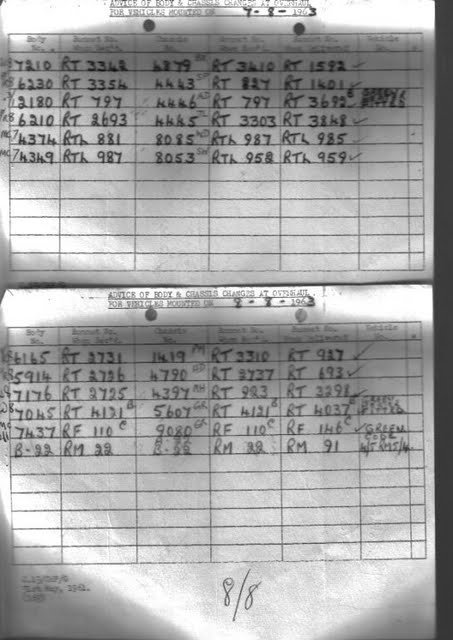 ADVICE OF BODY & CHASSIS CHANGES AT OVERHAUL
FOR VEHICLES MOUNTED ON 7-8-1963
Body No. Bonnet No. When Rec'd. Chassis No. Bonnet No. When Rec'd. Bonnet No. When Delivered Vehicle
7210 RT 3342 4879 RT 3410 RT 1592 ✓
6230 RT 3354 4443 RT 827 RT 1401 ✓
12180 RT 797 4446 RT 797 RT 3692 B
6210 RT 2693 4445 RT 3303 RT 3848 ✓
4374 RTL 881 8085 RTL 987 RTL 985 ✓
4349 RTL 987 8053 RTL 958 RTL 959 ✓
ADVICE OF BODY & CHASSIS CHANGES AT OVERHAUL
FOR VEHICLES MOUNTED ON 8-8-1963
Body No. Bonnet No. When Rec'd. Chassis No. Bonnet No. Bonnet No. When Delivered Vehicle No.
6165 RT 2731 1419 RT 3310 RT 927 ✓
5914 RT 2726 4790 RT 2737 RT 693 ✓
7176 RT 2725 4397 RT 923 RT 3291 ✓
7045 RT 4121 B 5607 GR RT 4121 B RT 4037 B
7437 RF 110 C 9080 GR RF 110 C RF 146 C ✓ GREEN
B-22 RM 22 B-22 RM 22 RM 91
31st May, 1961.
8/8